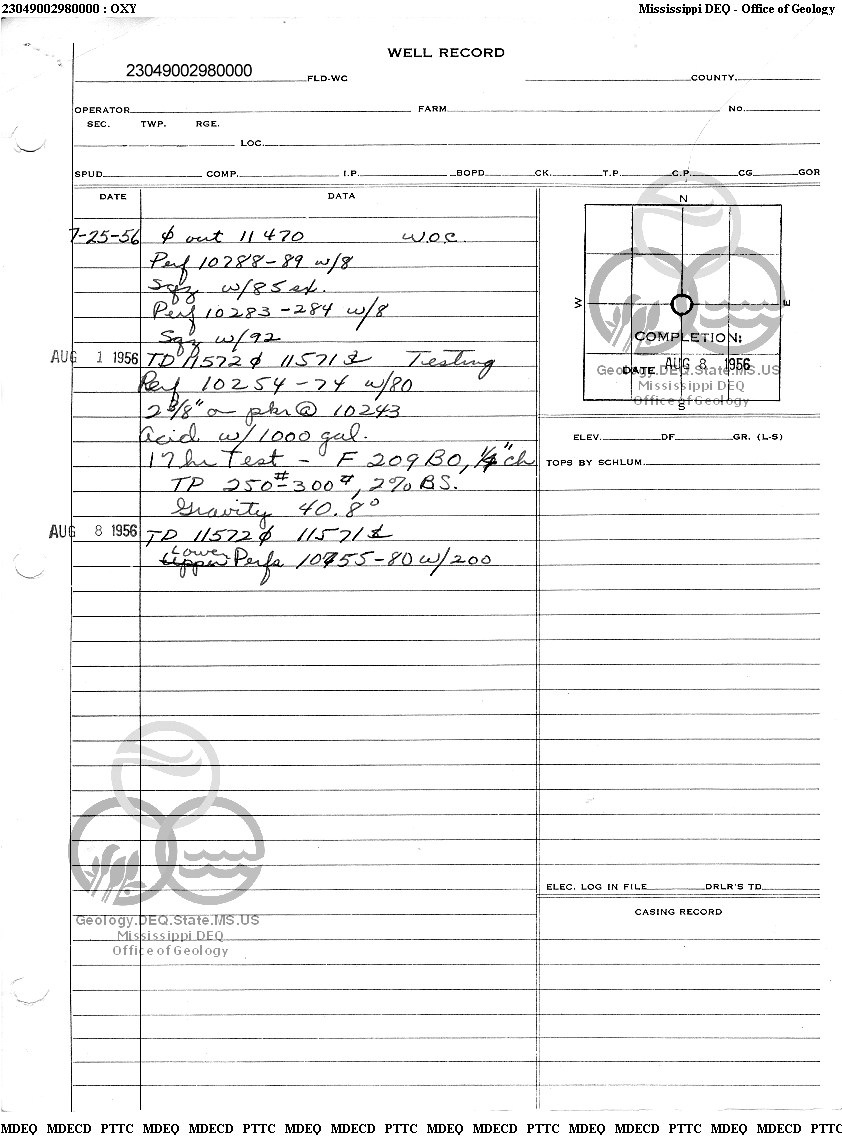 23049002980000 : OXY
Mississippi DEQ - Office of Geology
WELL RECORD
23049002980000 FLD-WC COUNTY
OPERATOR FARM NO.
SEC. TWP. RGE.
LOC.
SPUD COMP. I.P. BOPD CK. T.P. C.P. CG GOR
DATE DATA
7-25-56 ϕ out 11470 W.O.C.
Perf 10288-89 w/8
Sqz w/85 sx.
Perf 10283-284 w/8
Sqz w/92
AUG 1 1956 TD 11572 ϕ 11571 Testing
Perf 10254-74 w/80
2 3/8" on pkr @ 10243
Acid w/1000 gal.
17 hr Test - F 209 BO, 1/4" ch
TP 250#-300#, 2% BS.
Gravity 40.8°
AUG 8 1956 TD 11572 ϕ 11571
Lower Perfs 10755-80 w/200
N
W E
S
COMPLETION:
DATE AUG 8 1956
Geology.DEQ.State.MS.US
Mississippi DEQ
Office of Geology
ELEV. DF GR. (L-S)
TOPS BY SCHLUM.
ELEC. LOG IN FILE DRLR'S TD
CASING RECORD
Geology.DEQ.State.MS.US
Mississippi DEQ
Office of Geology
MDEQ MDECD PTTC MDEQ MDECD PTTC MDEQ MDECD PTTC MDEQ MDECD PTTC MDEQ MDECD PTTC MDEQ MDECD PTTC